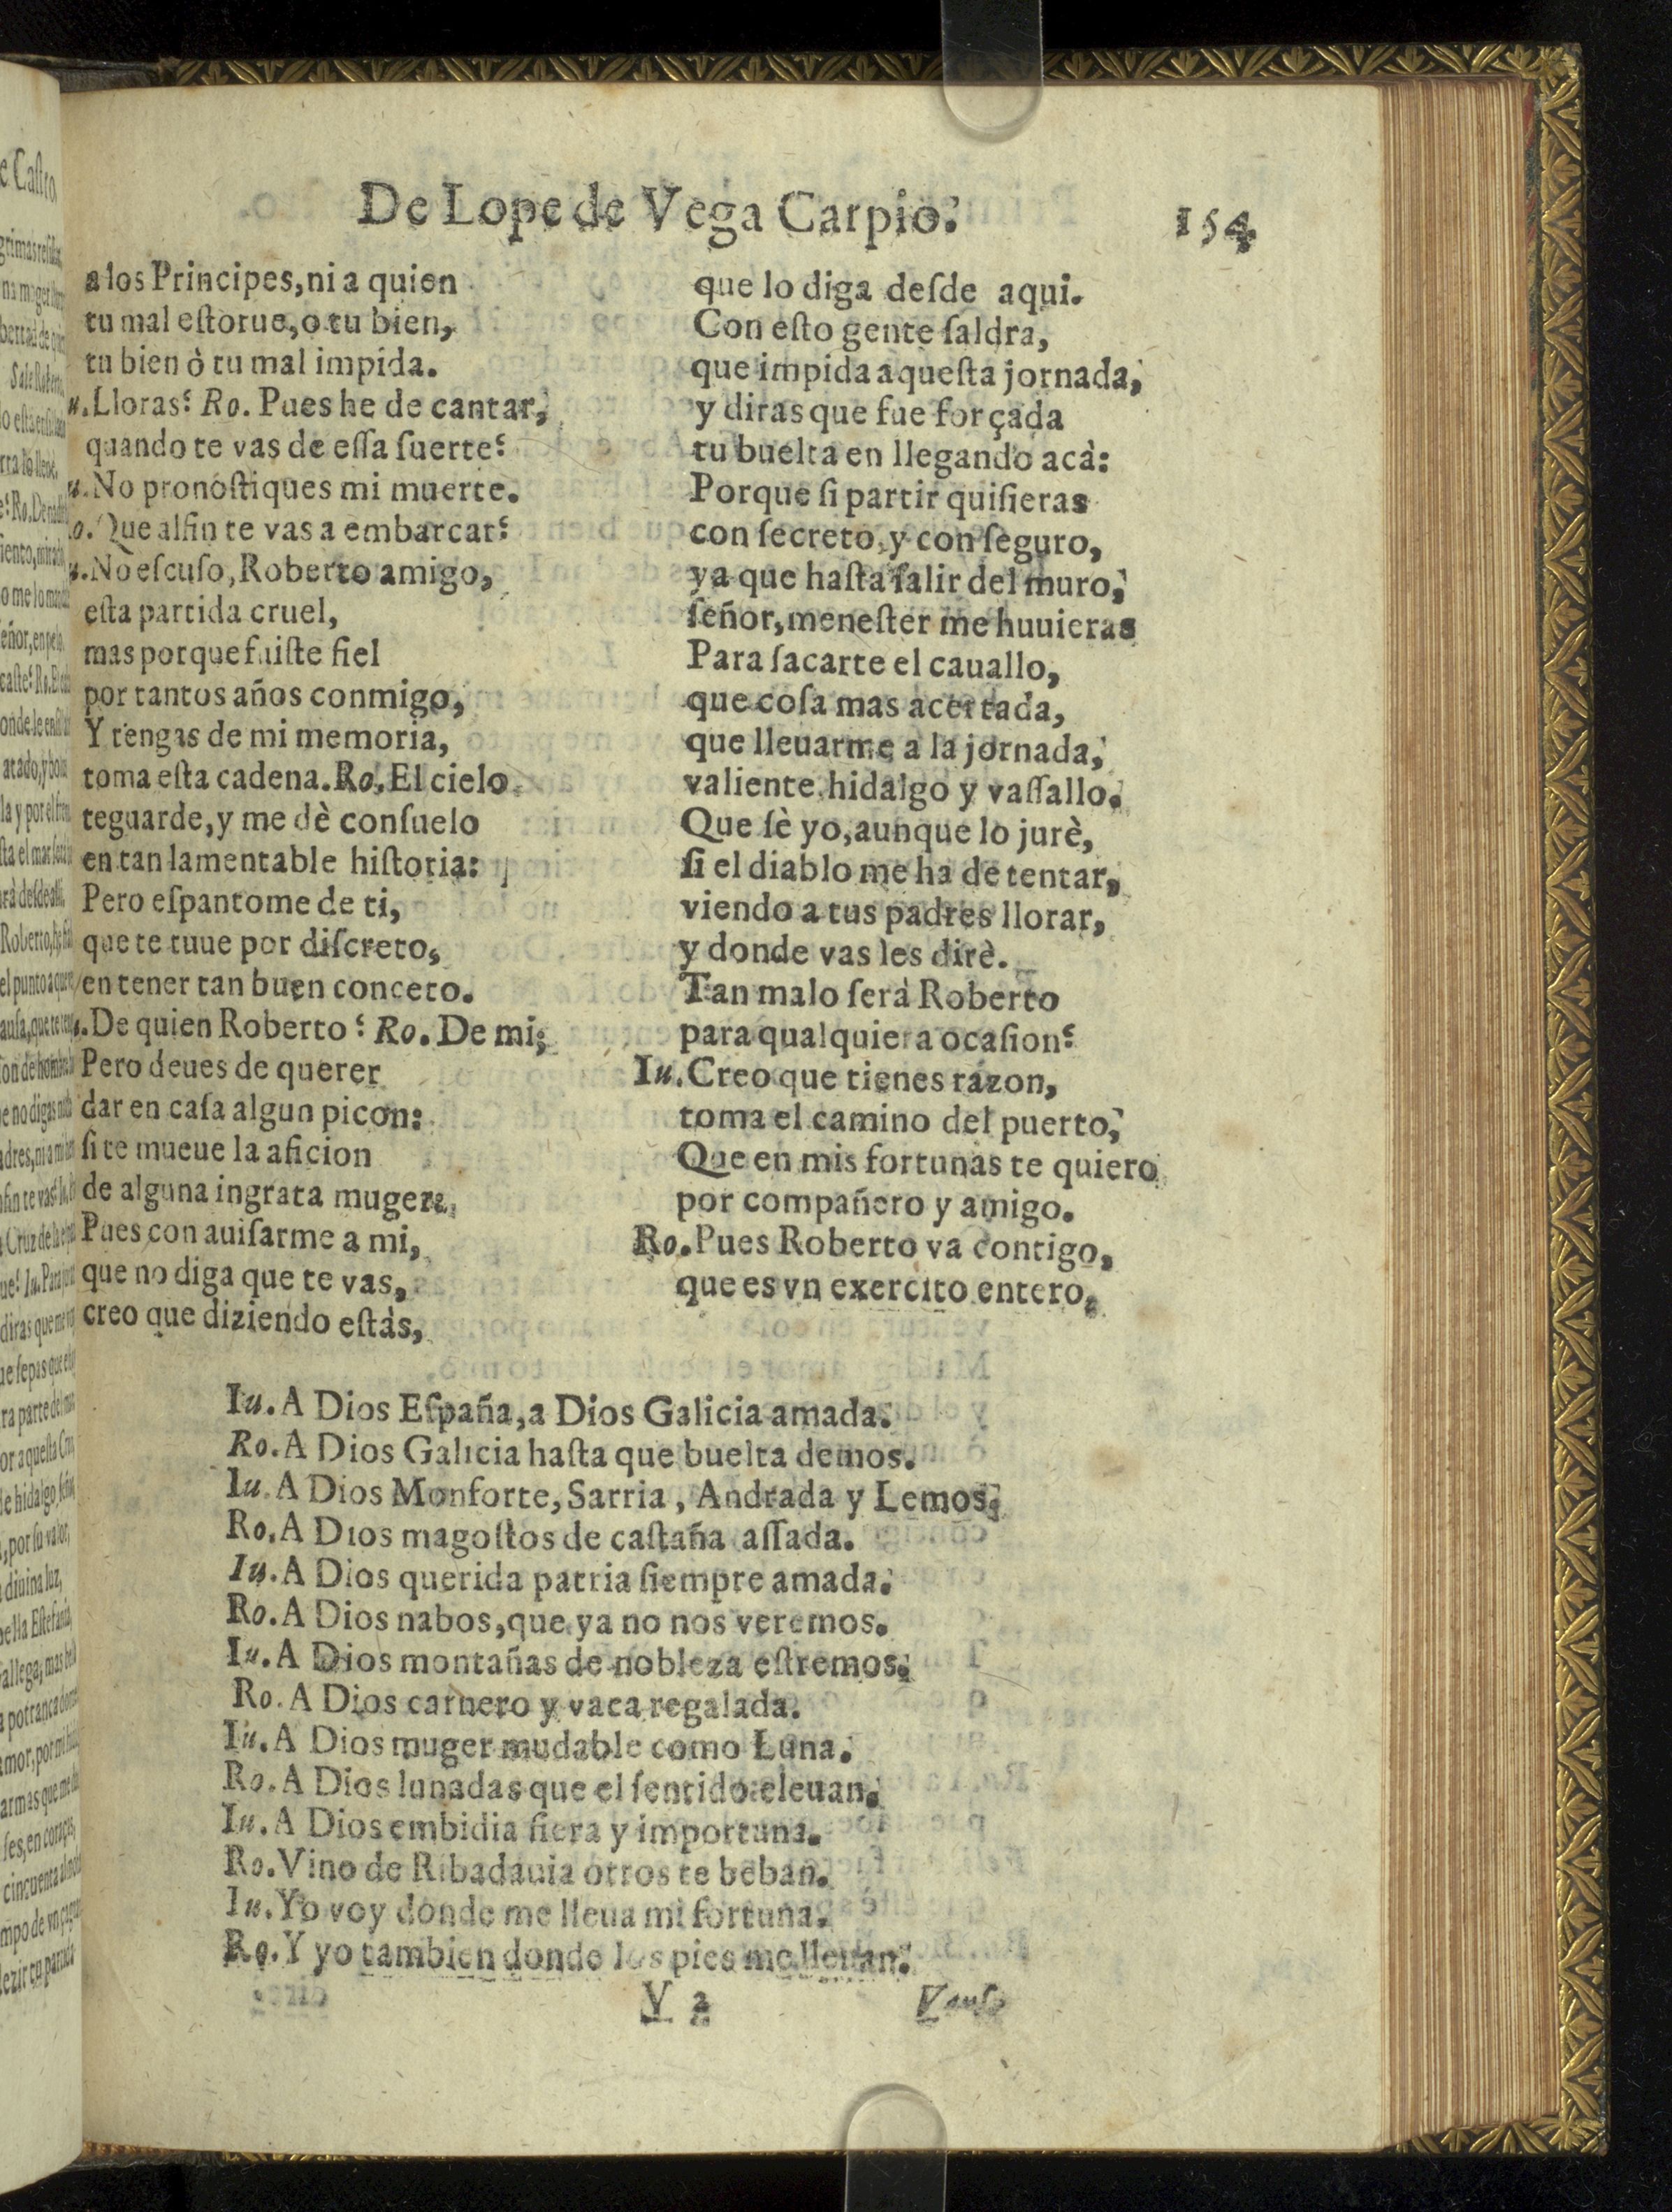 De Lope de Vega Carpio.
154
a los Principes, ni a quien
tu mal eſtorue, o tu bien,
tu bien ò tu mal impida.
u. Lloras? Ro. Pues he de cantar,
quando te vas de eſſa ſuerte?
u. No pronoſtiques mi muerte.
o. Que alfin te vas a embarcar?
u. No eſcuſo, Roberto amigo,
eſta partida cruel,
mas porque fuiſte fiel
por tantos años conmigo,
Y tengas de mi memoria,
toma eſta cadena. Ro. El cielo
te guarde, y me dè conſuelo
en tan lamentable hiſtoria:
Pero eſpantome de ti,
que te tuue por diſcreto,
en tener tan buen conceto.
u. De quien Roberto? Ro. De mi;
Pero deues de querer
dar en caſa algun picon:
ſi te mueue la aficion
de alguna ingrata muger,
Pues con auiſarme a mi,
que no diga que te vas,
creo que diziendo eſtàs,
que lo diga deſde aqui.
Con eſto gente ſaldra,
que impida aqueſta jornada,
y diras que fue forçada
tu buelta en llegando acà:
Porque ſi partir quiſieras
con ſecreto, y con ſeguro,
ya que haſta ſalir del muro,
ſeñor, meneſter me huuieras
Para ſacarte el cauallo,
que coſa mas acertada,
que lleuarme a la jornada,
valiente hidalgo y vaſſallo.
Que ſè yo, aunque lo jurè,
ſi el diablo me ha de tentar,
viendo a tus padres llorar,
y donde vas les dirè.
Tan malo ſerà Roberto
para qualquiera ocaſion?
Iu. Creo que tienes razon,
toma el camino del puerto,
Que en mis fortunas te quiero
por compañero y amigo.
Ro. Pues Roberto va contigo,
que es vn exercito entero,
Iu. A Dios Eſpaña, a Dios Galicia amada.
Ro. A Dios Galicia haſta que buelta demos.
Iu. A Dios Monforte, Sarria, Andrada y Lemos,
Ro. A Dios magoſtos de caſtaña aſſada.
Iu. A Dios querida patria ſiempre amada.
Ro. A Dios nabos, que ya no nos veremos.
Iu. A Dios montañas de nobleza eſtremos.
Ro. A Dios carnero y vaca regalada.
Iu. A Dios muger mudable como Luna.
Ro. A Dios lunadas que el ſentido eleuan.
Iu. A Dios embidia fiera y importuna.
Ro. Vino de Ribadauia otros te beban.
Iu. Yo voy donde me lleua mi fortuna.
Ro. Y yo tambien donde los pies me lleuan.
V 2
Vanſe